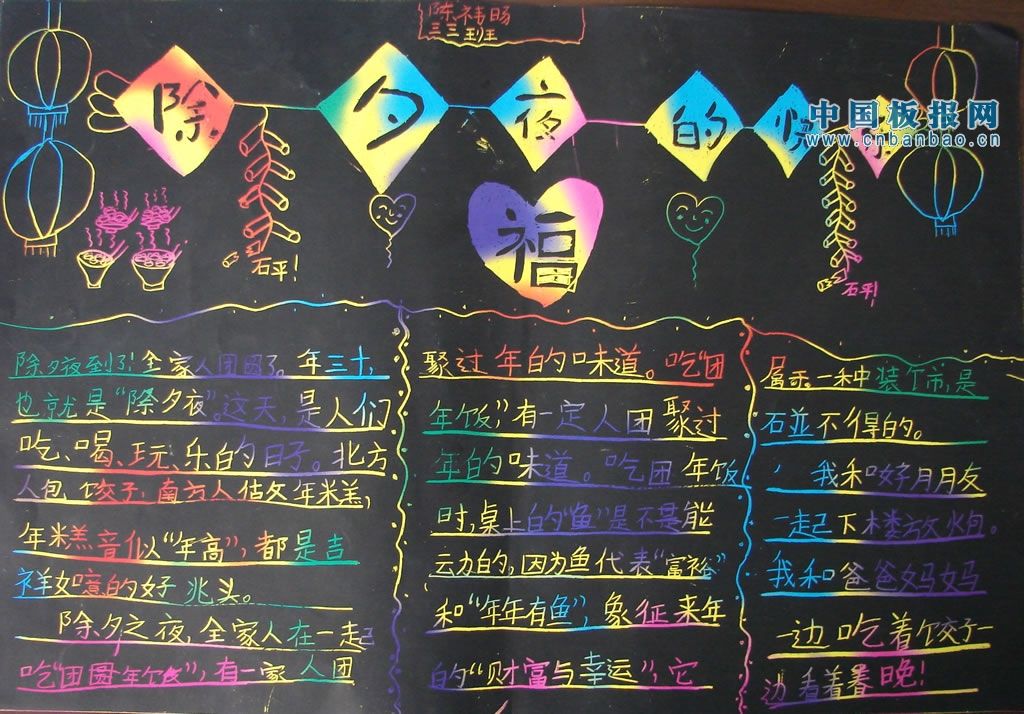 陈祎旸
三三班
除夕夜的快乐
中国板报网
www.cnbanbao.cn
福
石平!
石平!
除夕夜到了!全家人团圆了。年三十,
也就是“除夕夜”。这天,是人们
吃、喝、玩、乐的日子。北方
人包饺子,南方人估攵年糕,
年糕音似“年高”,都是吉
祥如意的好兆头。
除夕之夜,全家人在一起
吃“团圆年饭”,有一家人团
聚过年的味道。吃“团
年饭”,有一定人团聚过
年的味道。吃团年饭
时,桌上的“鱼”是不是能
云力的,因为鱼代表“富裕”
和“年年有鱼”,象征来年
的“财富与幸运”,它
属于一种装饰,是
石並不得的。
我和好月月友
一起下楼放炮。
我和爸爸妈妈
一边吃着饺子一
边看着春晚!